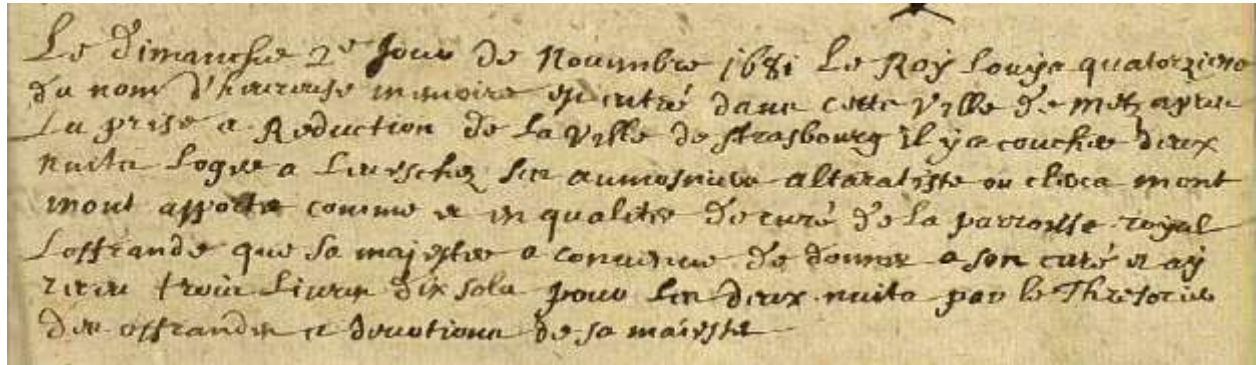 Le Dimanche 2e Jour de Novembre 1681 Le Roy Louys quatorzieme
du nom d'heureuse memoire est entré dans cette Ville de Metz apres
La prise et Reduction de La Ville de Strasbourg il y a couchee deux
nuits Logee a Levesché ses aumosniers altaraliste ou clercs mont
mont apporté comme et en qualitee de curé de la parroisse royal
Loffrande que sa majestee a coutume de donner a son curé et ay
receu trois Livres dix sols pour les deux nuits par le Thresorier
des offrandes et devotions de sa maiesté